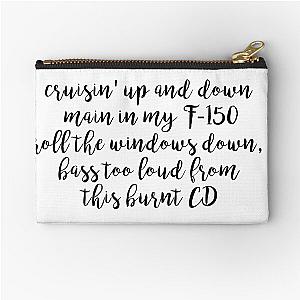 cruisin' up and down
main in my F-150
roll the windows down,
bass too loud from
this burnt CD